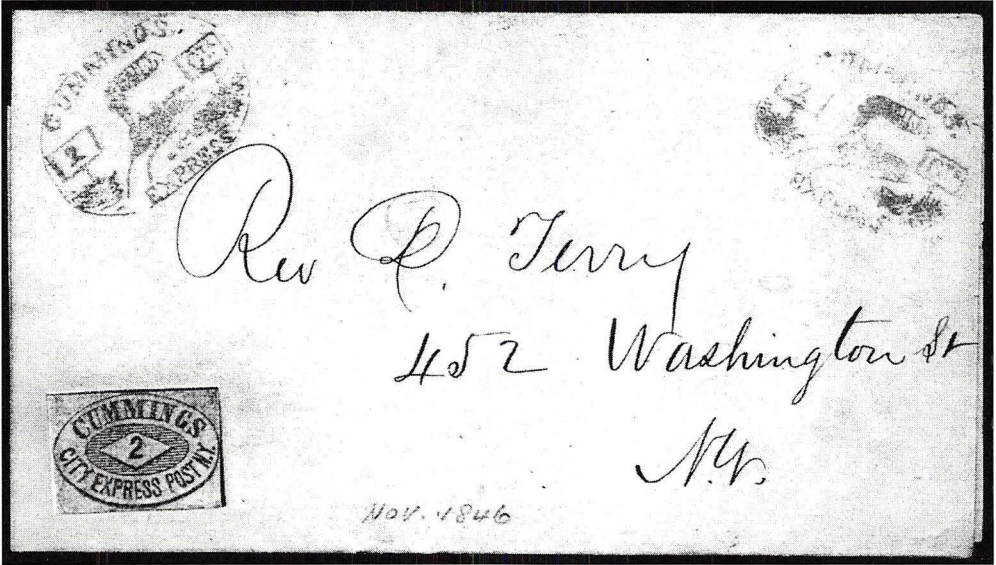 CUMMINGS.
2 CTS
EXPRESS
2
Rev R. Terry
452 Washington St
N.Y.
CUMMINGS
2
CITY EXPRESS POST N.Y.
Nov. 1846